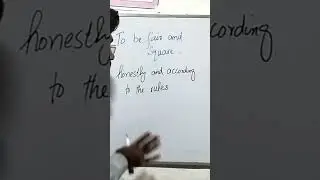 To be fair and
Square.
honestly and according
to the rules
honestly
to the
according
rules